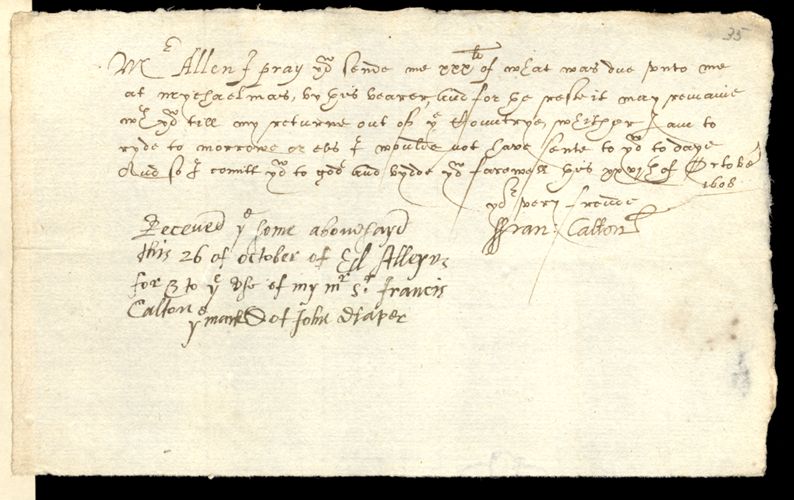 35
Mr Allen I pray you sende me xxxli of what was due vnto me
at mychaelmas, by this bearer, and for the reste it may remaine
wth you till my returne out of ye Countrye, whither I am to
ryde to morrowe or els I woulde not have sente to you to daye
And so I comitt you to god and bydde you farewell this xxvith of October
1608
yor very frende
ffran: Calton
Receved ye some abovsayd
this 26 of october of Ed Alleyn
for & to ye vse of my mr Sr Francis
Calton
ye mark of John Draper